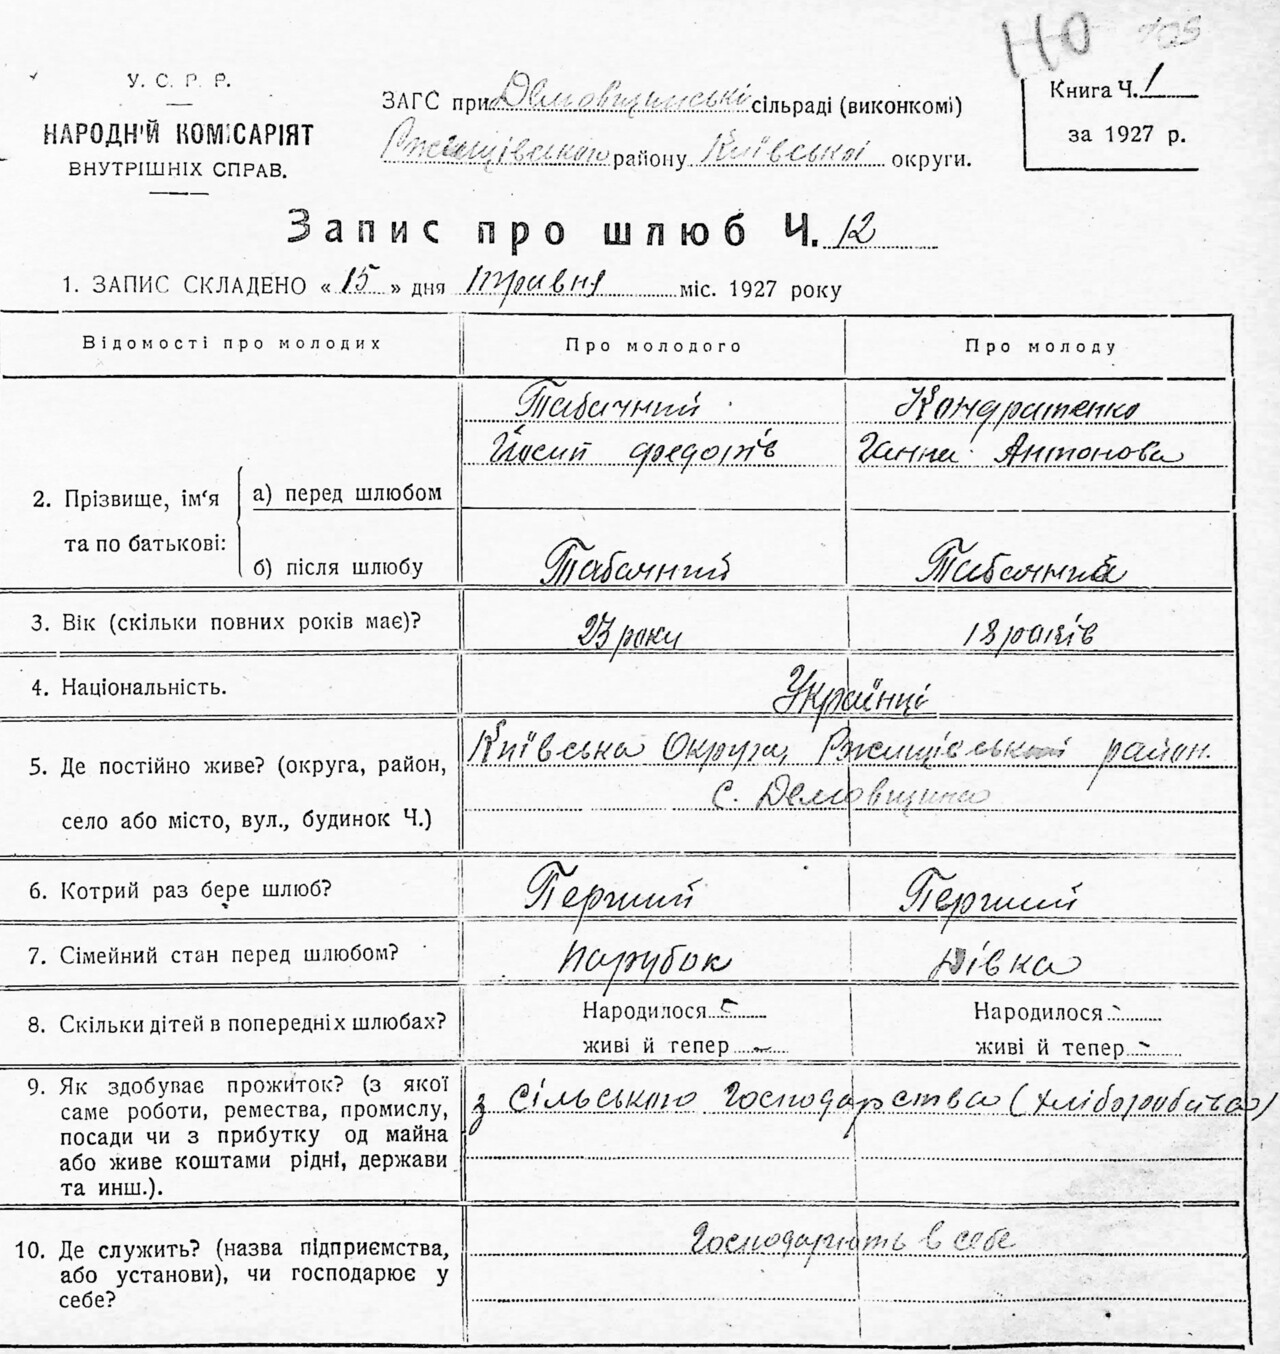 110 105
У. С. Р. Р.
НАРОДНІЙ КОМІСАРІЯТ
ВНУТРІШНІХ СПРАВ.
ЗАГС при Демовщинській сільраді (виконкомі)
Ржищівського району Київської округи.
Книга Ч. 1
за 1927 р.
Запис про шлюб Ч. 12
1. ЗАПИС СКЛАДЕНО « 15 » дня травня міс. 1927 року
Відомості про молодих Про молодого Про молоду
Табачний Кондратенко
Йосип Федорів Ганна Антонова
2. Прізвище, ім'я та по батькові: а) перед шлюбом
б) після шлюбу Табачний Табачний
3. Вік (скільки повних років має)? 23 роки 18 років
4. Національність. Українці
5. Де постійно живе? (округа, район, Київська Округа, Ржищівський район.
село або місто, вул., будинок Ч.) с. Демовщина
6. Котрий раз бере шлюб? Перший Перший
7. Сімейний стан перед шлюбом? парубок дівка
8. Скільки дітей в попередніх шлюбах? Народилося - Народилося -
живі й тепер - живі й тепер -
9. Як здобуває прожиток? (з якої з сільського господарства (хліборобства)
саме роботи, ремества, промислу,
посади чи з прибутку од майна
або живе коштами рідні, держави
та инш.).
10. Де служить? (назва підприємства, Господарюють в себе
або установи), чи господарює у
себе?